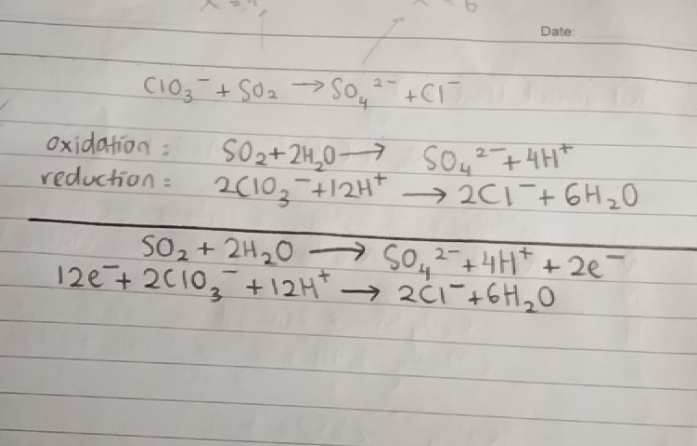 Date:
ClO₃⁻ + SO₂ → SO₄²⁻ + Cl⁻
oxidation: SO₂ + 2H₂O → SO₄²⁻ + 4H⁺
reduction: 2ClO₃⁻ + 12H⁺ → 2Cl⁻ + 6H₂O
SO₂ + 2H₂O → SO₄²⁻ + 4H⁺ + 2e⁻
12e⁻ + 2ClO₃⁻ + 12H⁺ → 2Cl⁻ + 6H₂O